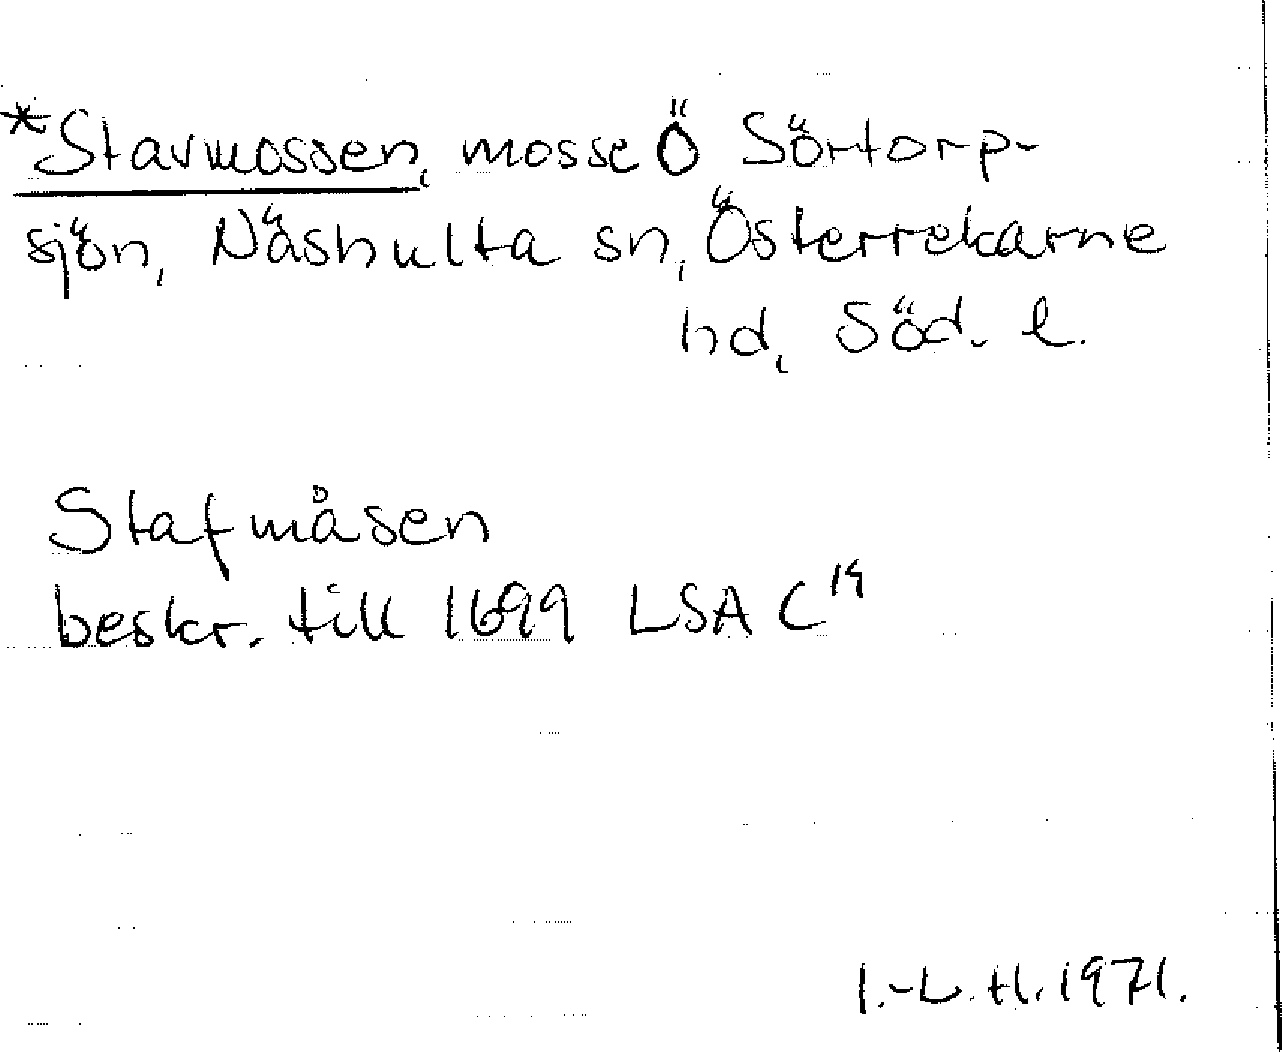 *Stavmossen, mosse Ö Sörtorp-
sjön, Näshulta sn, Österrekarne
hd, Söd. l.
Stafmåsen
beskr. till 1699 LSA C 14
I.-L. H. 1971.